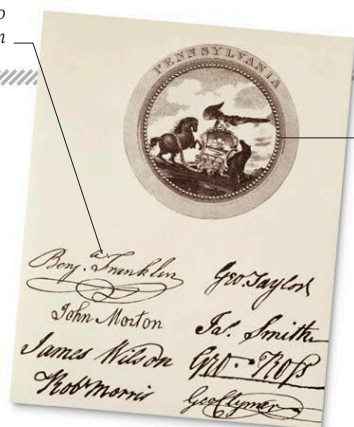 PENNSYLVANIA
Benj. Franklin
John Morton
James Wilson
Rob Morris
Geo. Taylor
Jas. Smith
Geo. Ross
Geo Clymer